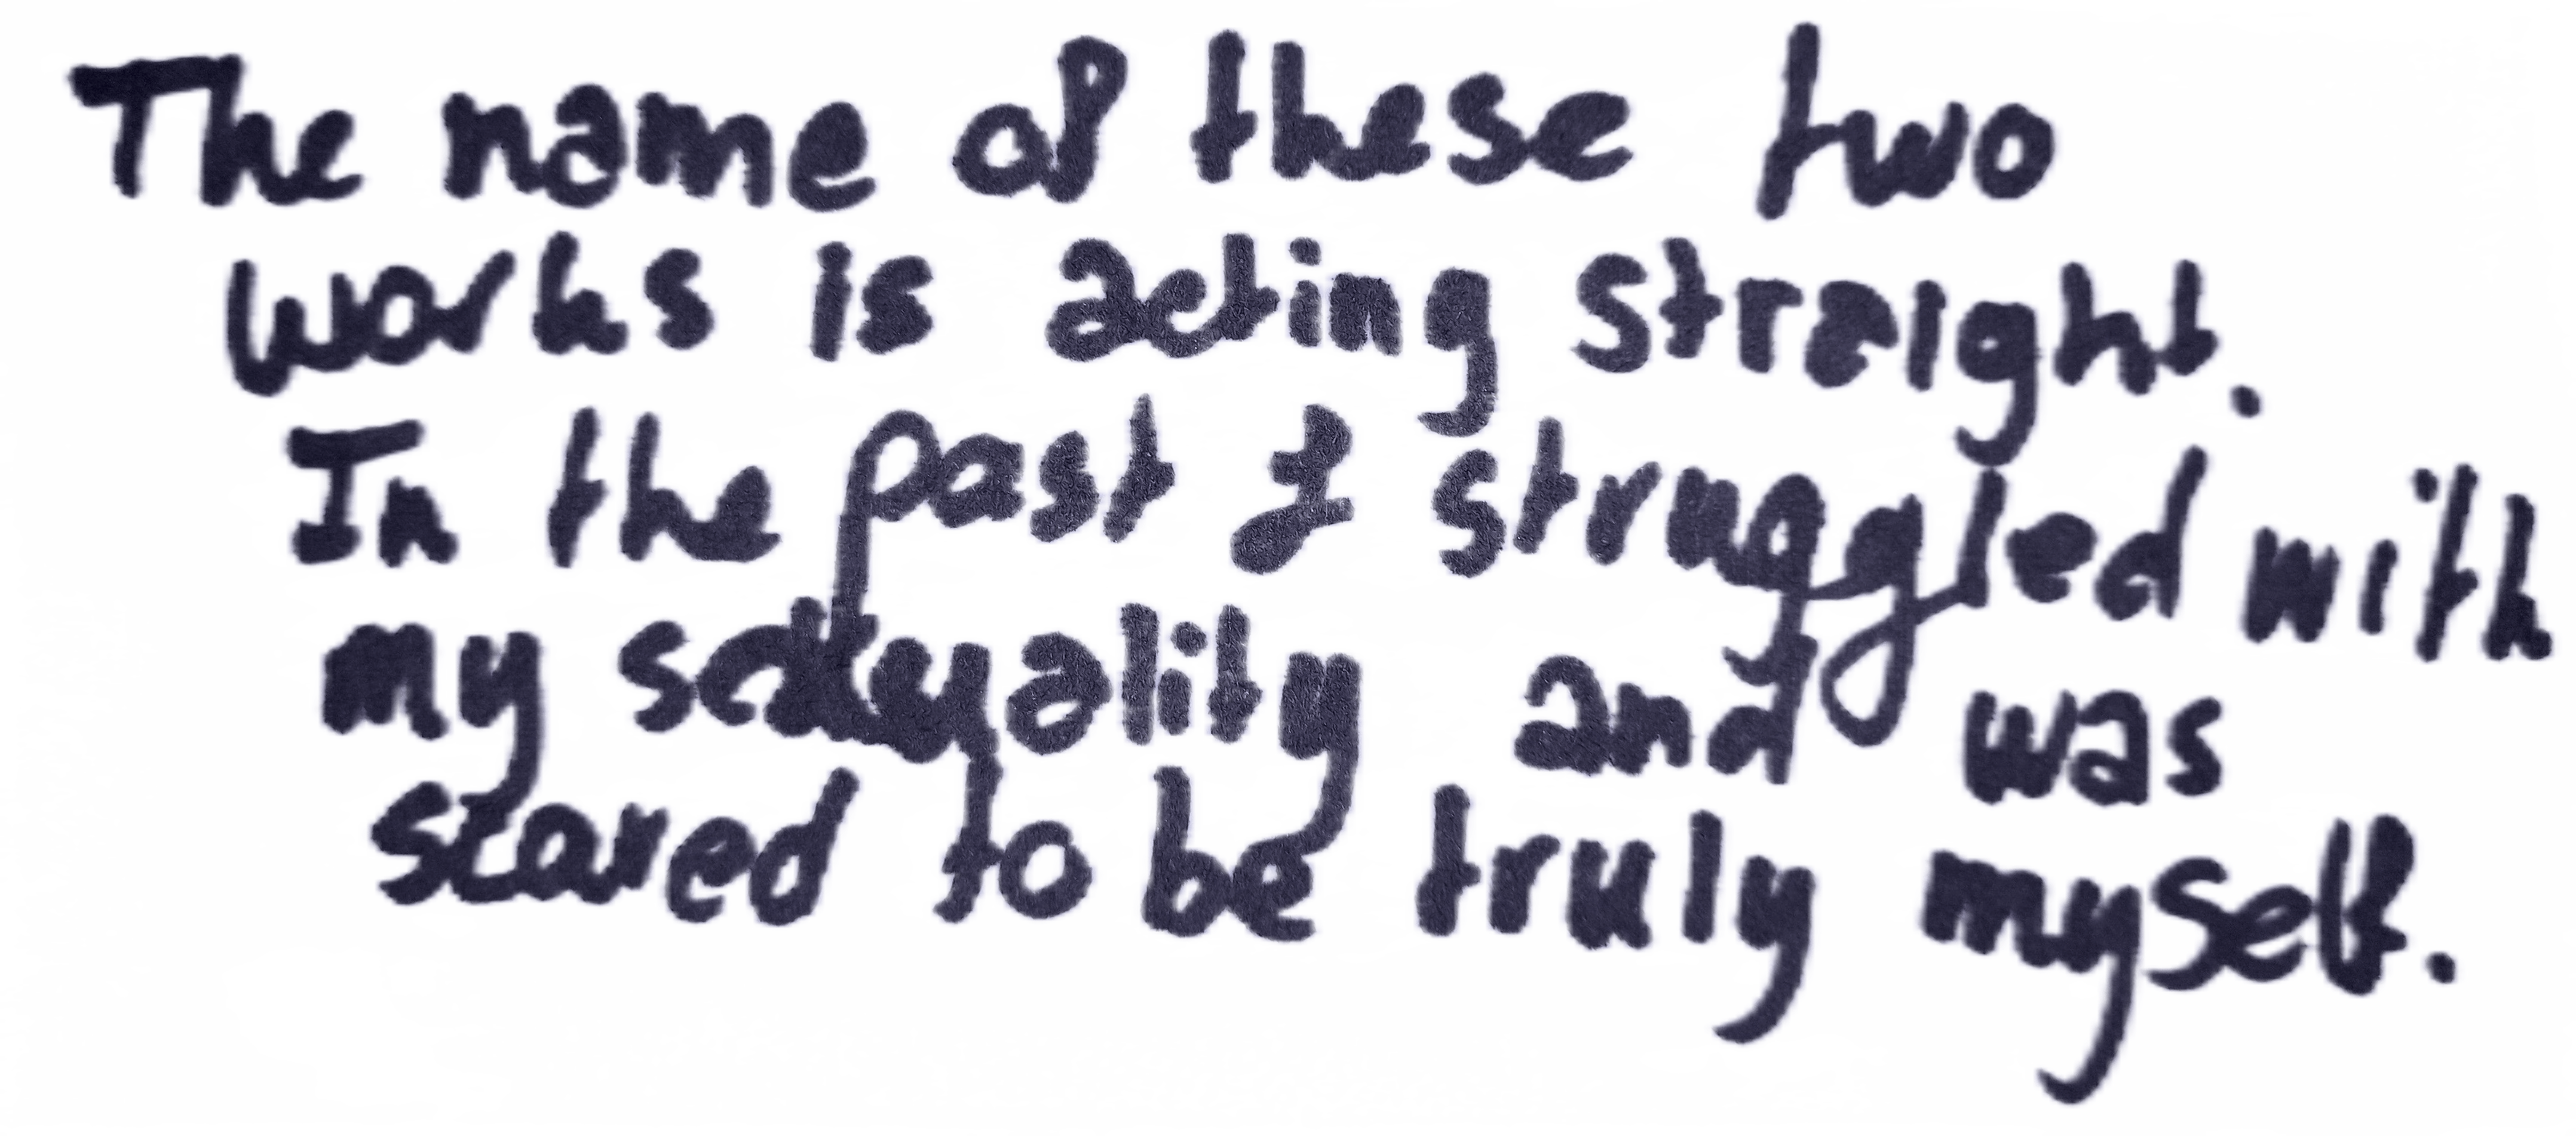 The name of these two
works is acting straight.
In the past I struggled with
my sexuality and was
scared to be truly myself.